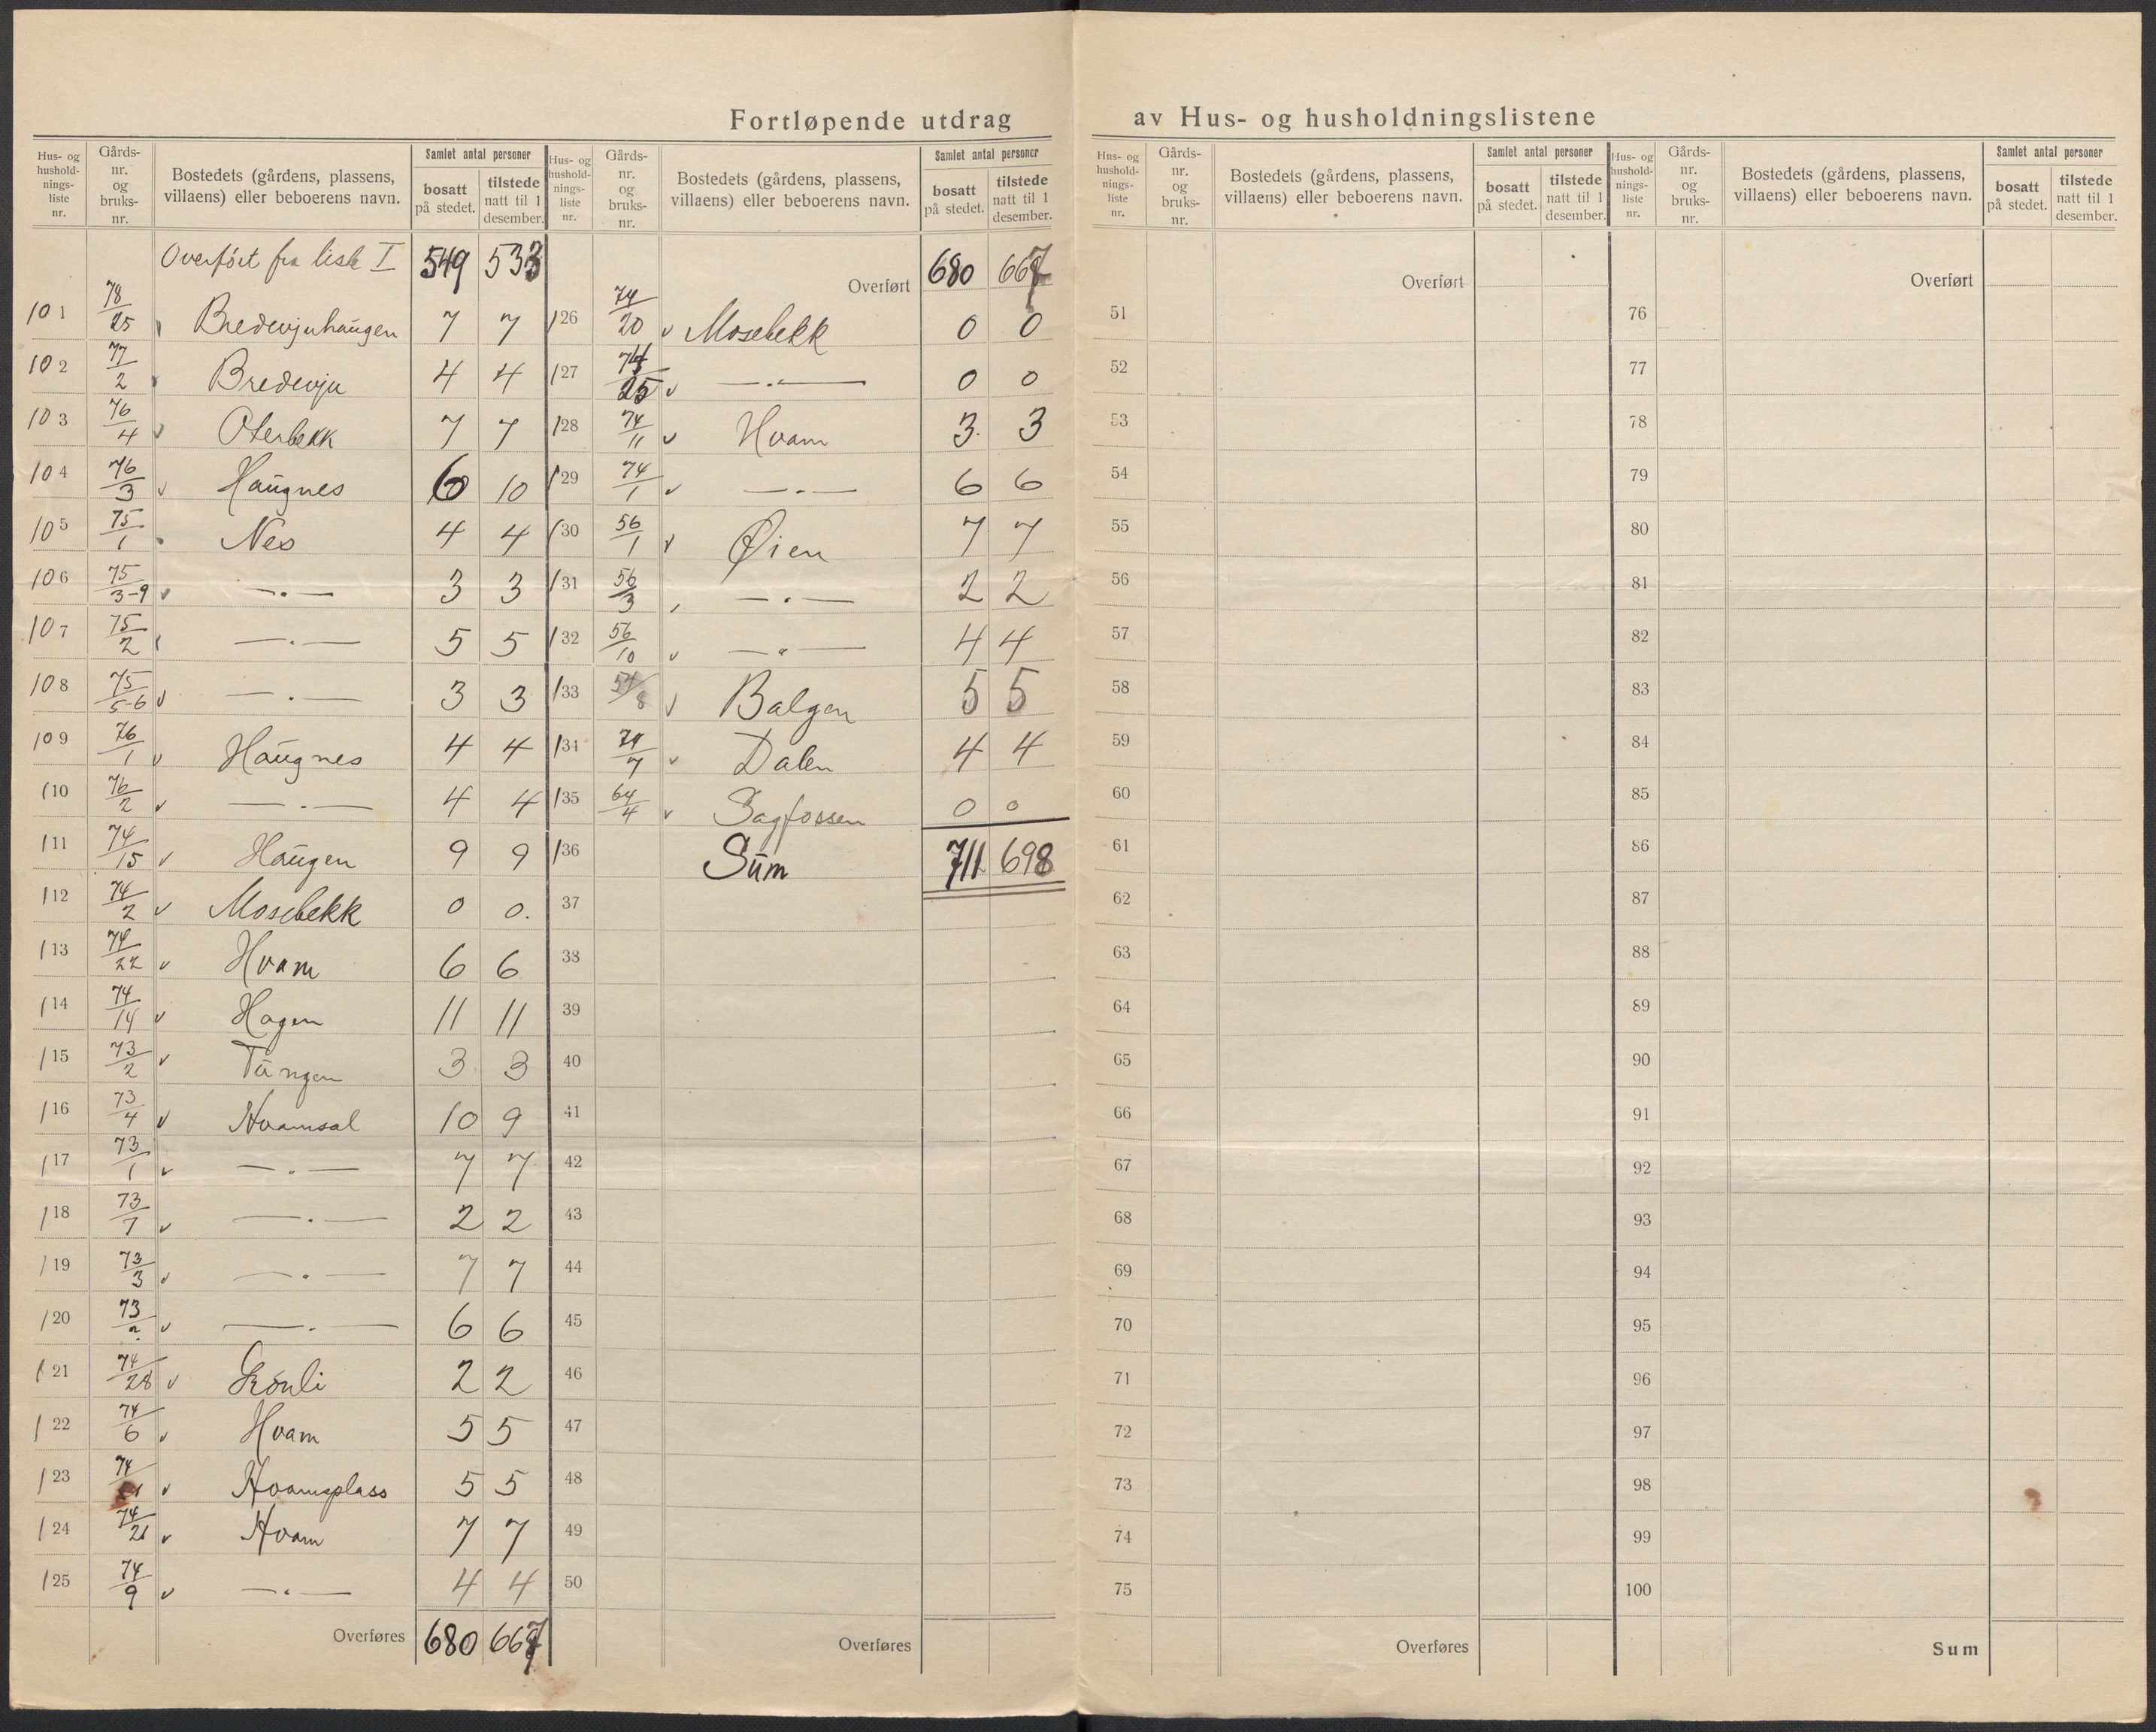 Fortløpende utdrag av Hus- og husholdningslistene
Hus- og hushold-nings-liste nr. Gårds-nr. og bruks-nr. Bostedets (gårdens, plassens, villaens) eller beboerens navn. Samlet antal personer bosatt på stedet. tilstede natt til 1 desember.
Overført fra liste I 549 533
101 78/25 Bredevjuhaugen 7 7
102 77/2 Bredevju 4 4
103 76/4 Oterbekk 7 7
104 76/3 Haugnes 6 10
105 75/1 Nes 4 4
106 75/3-9 —.— 3 3
107 75/2 —.— 5 5
108 75/5-6 —.— 3 3
109 76/1 Haugnes 4 4
110 76/2 —.— 4 4
111 74/15 Haugen 9 9
112 74/2 Mosebekk 0 0.
113 74/22 Hvam 6 6
114 74/14 Hagen 11 11
115 73/2 Tangen 3 3
116 73/4 Hvamsal 10 9
117 73/1 —.— 7 7
118 73/7 —.— 2 2
119 73/3 —.— 7 7
120 73/ —.— 6 6
121 74/28 Grönli 2 2
122 74/6 Hvam 5 5
123 74/ Hvamsplass 5 5
124 74/21 Hvam 7 7
125 74/9 —.— 4 4
Overføres 680 667
Hus- og hushold-nings-liste nr. Gårds-nr. og bruks-nr. Bostedets (gårdens, plassens, villaens) eller beboerens navn. Samlet antal personer bosatt på stedet. tilstede natt til 1 desember.
Overført 680 667
126 74/20 Mosebekk 0 0
127 74/25 —.— 0 0
128 74/11 Hvam 3. 3
129 74/1 —.— 6 6
130 56/1 Øien 7 7
131 56/3 —.— 2 2
132 56/10 —.— 4 4
133 54/8 Balgen 5 5
134 74/7 Dalen 4 4
135 64/4 Sagfossen 0 0
136 Sum 711 698
37
38
39
40
41
42
43
44
45
46
47
48
49
50
Overføres
Hus- og hushold-nings-liste nr. Gårds-nr. og bruks-nr. Bostedets (gårdens, plassens, villaens) eller beboerens navn. Samlet antal personer bosatt på stedet. tilstede natt til 1 desember.
Overført
51
52
53
54
55
56
57
58
59
60
61
62
63
64
65
66
67
68
69
70
71
72
73
74
75
Overføres
Hus- og hushold-nings-liste nr. Gårds-nr. og bruks-nr. Bostedets (gårdens, plassens, villaens) eller beboerens navn. Samlet antal personer bosatt på stedet. tilstede natt til 1 desember.
Overført
76
77
78
79
80
81
82
83
84
85
86
87
88
89
90
91
92
93
94
95
96
97
98
99
100
Sum